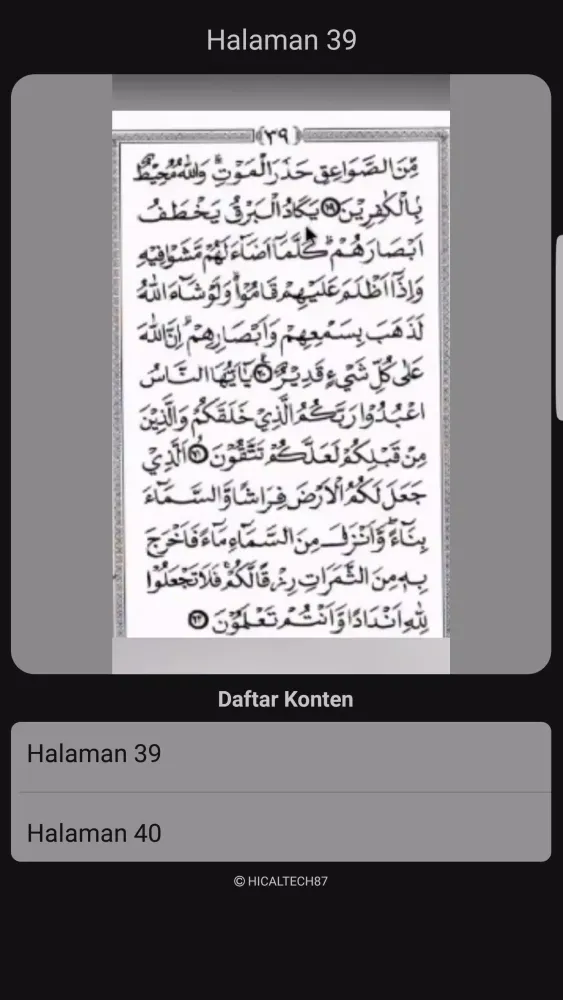 Halaman 39
﴿٣٩﴾
مِّنَ الصَّوَاعِقِ حَذَرَ الْمَوْتِ ۗ وَاللّٰهُ مُحِيْطٌۢ
بِالْكٰفِرِيْنَ ⑲ يَكَادُ الْبَرْقُ يَخْطَفُ
اَبْصَارَهُمْ ۗ كُلَّمَآ اَضَآءَ لَهُمْ مَّشَوْا فِيْهِ
وَاِذَآ اَظْلَمَ عَلَيْهِمْ قَامُوْا ۗ وَلَوْ شَآءَ اللّٰهُ
لَذَهَبَ بِسَمْعِهِمْ وَاَبْصَارِهِمْ ۗ اِنَّ اللّٰهَ
عَلٰى كُلِّ شَيْءٍ قَدِيْرٌ ⑳ يٰٓاَيُّهَا النَّاسُ
اعْبُدُوْا رَبَّكُمُ الَّذِيْ خَلَقَكُمْ وَالَّذِيْنَ
مِنْ قَبْلِكُمْ لَعَلَّكُمْ تَتَّقُوْنَ ㉑ الَّذِيْ
جَعَلَ لَكُمُ الْاَرْضَ فِرَاشًا وَّالسَّمَآءَ
بِنَآءً ۖ وَّاَنْزَلَ مِنَ السَّمَآءِ مَآءً فَاَخْرَجَ
بِهٖ مِنَ الثَّمَرٰتِ رِزْقًا لَّكُمْ ۚ فَلَا تَجْعَلُوْا
لِلّٰهِ اَنْدَادًا وَّاَنْتُمْ تَعْلَمُوْنَ ㉒
Daftar Konten
Halaman 39
Halaman 40
© HICALTECH87